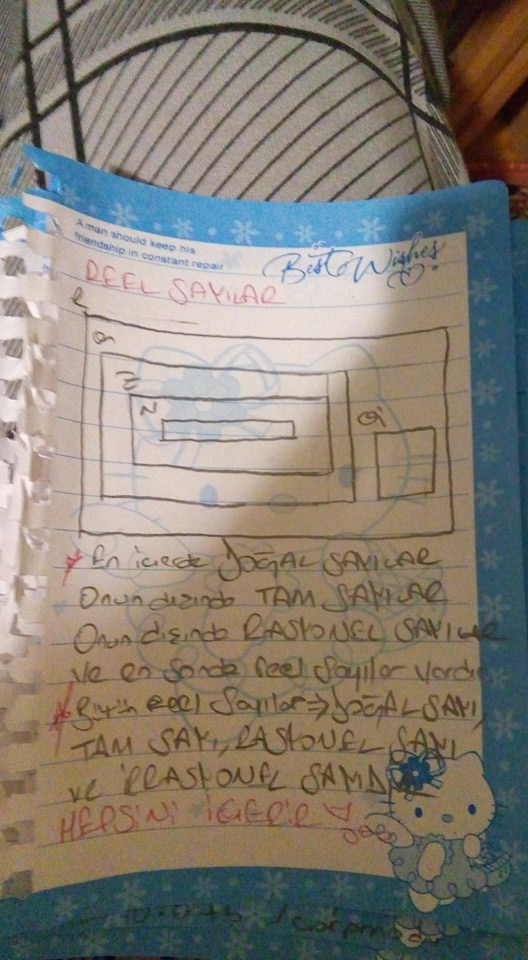 A man should keep his
friendship in constant repair
Best Wishes
REEL SAYILAR
R
Q
Z
N
Qi
* En içerde DOĞAL SAYILAR
Onun dışında TAM SAYILAR
Onun dışında RASYONEL SAYILAR
ve en sonda reel sayılar vardır
* Bütün reel sayılar => DOĞAL SAYI,
TAM SAYI, RASYONEL SAYI
ve İRRASYONEL SAYIDIR
HEPSİNİ İÇERİR